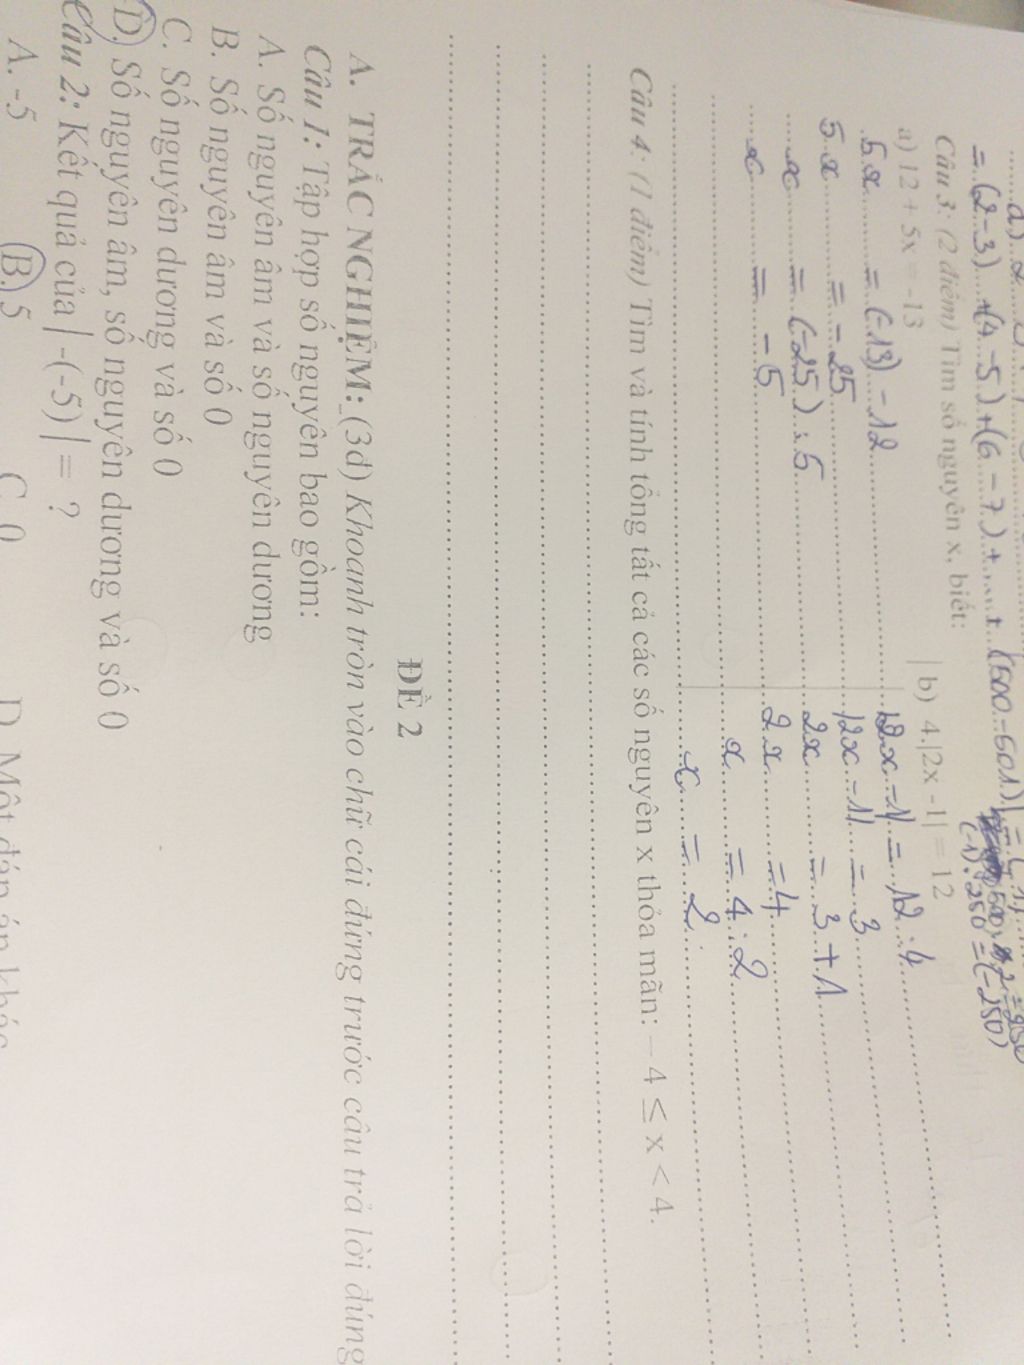 a) 2
= (2-3) + (4-5) + (6-7) + ..... + (500-501) =
(-1).250 = (-250)
Câu 3: (2 điểm) Tìm số nguyên x, biết:
a) 12 + 5x = -13
5x = (-13) - 12
5x = -25
x = (-25) : 5
x = -5
b) 4.|2x -1| = 12
|2x -1| = 12 : 4
|2x -1| = 3
2x = 3 + 1
2x = 4
x = 4 : 2
x = 2
Câu 4: (1 điểm) Tìm và tính tổng tất cả các số nguyên x thỏa mãn: – 4 ≤ x < 4.
ĐỀ 2
A. TRẮC NGHIỆM: (3đ) Khoanh tròn vào chữ cái đứng trước câu trả lời đúng
Câu 1: Tập hợp số nguyên bao gồm:
A. Số nguyên âm và số nguyên dương
B. Số nguyên âm và số 0
C. Số nguyên dương và số 0
D. Số nguyên âm, số nguyên dương và số 0
Câu 2: Kết quả của | -(-5) | = ?
A. -5 B. 5 C. 0 D. Một đáp án khác